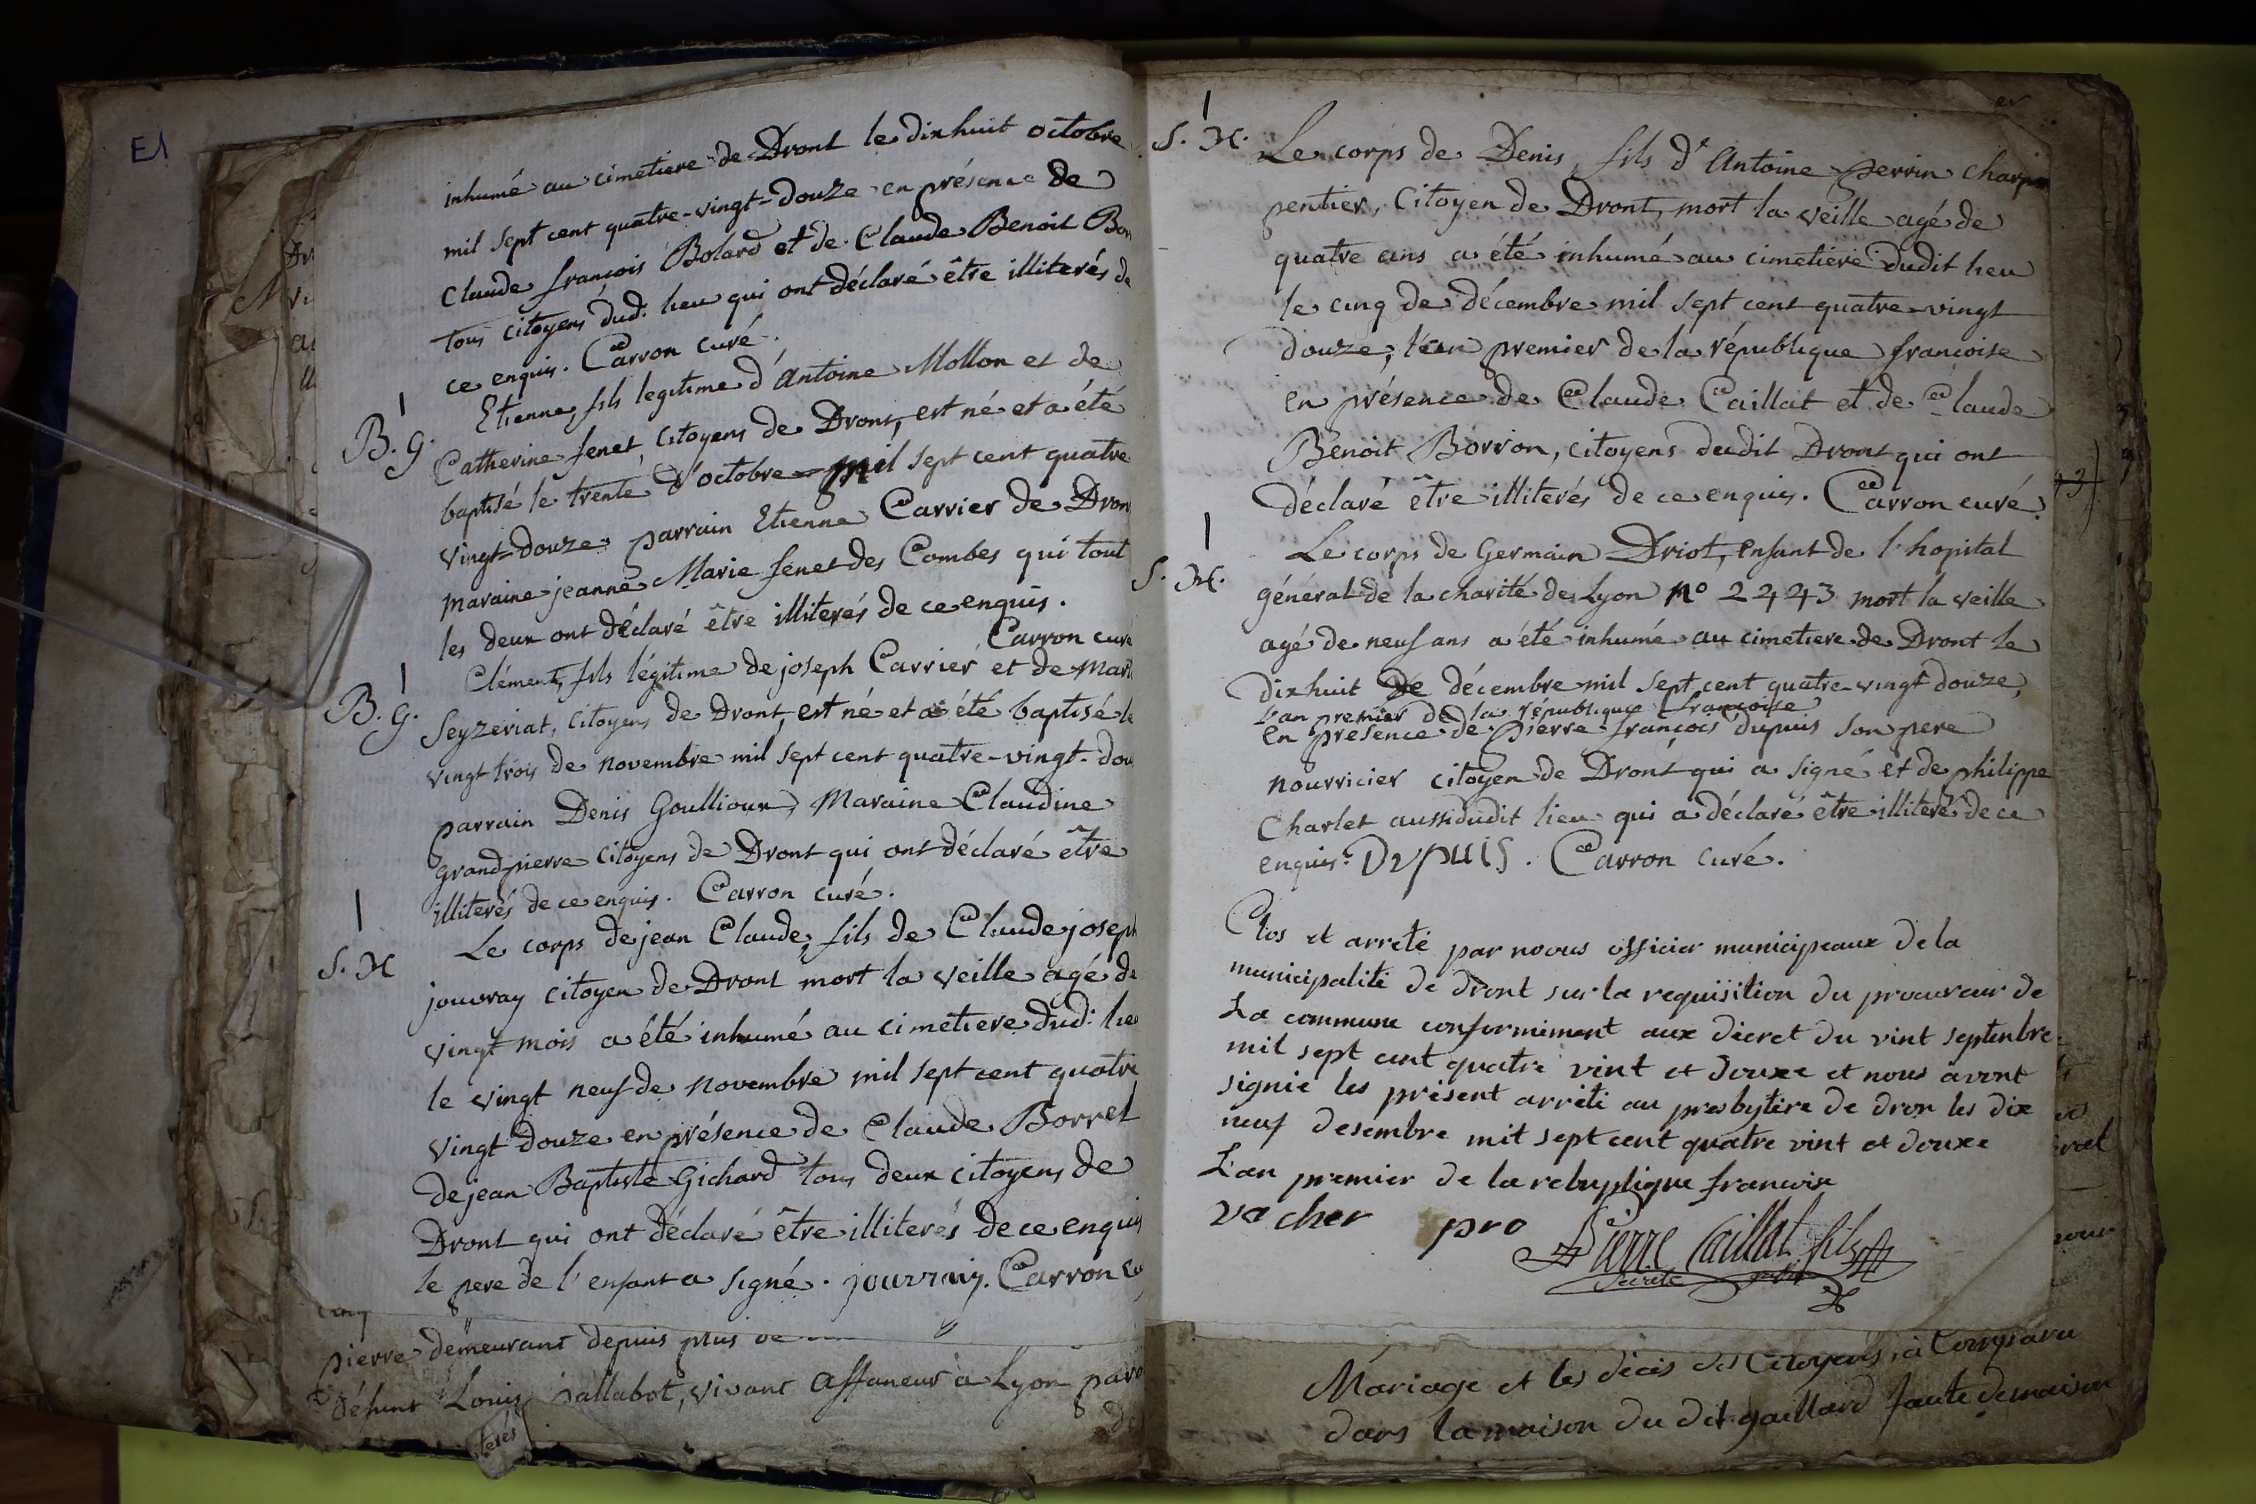 E1
inhumé au cimetiere de Dront le dixhuit octobre
mil sept cent quatre-vingt-douze en présence de
Claude françois Bolard et de Claude Benoit Bor
tous citoyens dud: lieu qui ont déclaré être illiterés de
ce enquis. Carron curé.
B. G. Etienne, fils legitime d'Antoine Mollon et de
Catherine fenet, Citoyens de Dront, est né et a été
baptisé le trente d'octobre mil sept cent quatre
vingt-douze, parrain Etienne Carrier de Dron
maraine jeanne Marie fenet des Combes qui tout
les deux ont déclaré être illiterés de ce enquis.
Carron curé
B. G. Clément, fils légitime de joseph Carrier et de Mari
Seyzeriat, Citoyens de Dront, est né et a été baptisé le
vingt trois de novembre mil sept cent quatre-vingt-dou
parrain Denis Goullioux, Maraine Claudine
grandpierre Citoyens de Dront qui ont déclaré être
illiterés de ce enquis. Carron curé.
S. H Le corps de jean Claude, fils de Claude joseph
jouvray citoyen de Dront mort la veille agé de
vingt mois a été inhumé au cimetiere dud: lieu
le vingt neuf de novembre mil sept cent quatre
vingt douze en présence de Claude Borret
de jean Baptiste Gichard tous deux citoyens de
Dront qui ont déclaré être illiterés de ce enquis
le pere de l'enfant a signé. jouvray. Carron cu
pierre demeurant depuis plus de
défunt Louis pallabot, vivant affaneur à Lyon paro
terés
S. H. Le corps de Denis, fils d'Antoine perrin charpen
pentier, Citoyen de Dront, mort la veille agé de
quatre ans a été inhumé au cimetiére dudit lieu
le cinq de décembre mil sept cent quatre-vingt
douze, l'an premier de la république françoise
en présence de Claude Caillat et de Claude
Benoit Borron, citoyens dudit Dront qui ont
déclaré être illiterés de ce enquis. Carron curé.
S. H. Le corps de Germain Driot, enfant de l'hopital
général de la charité de Lyon No 2423 mort la veille
agé de neuf ans a été inhumé au cimetiere de Dront le
dixhuit de décembre mil sept cent quatre-vingt douze,
l'an premier de la république françoise
en présence de pierre françois dupuis son pere
nourricier citoyen de Dront qui a signé et de philippe
Charlet aussi dudit lieu qui a déclaré être illiteré de ce
enquis. DVPUIS. Carron curé.
Clos et arreté par nous officier municipeaux de la
municipalité de dront sur la requisition du procureur de
La commune conformément aux décret du vint septenbre
mil sept cent quatre vint et douxe et nous avont
signié les présent arrêté au presbytère de dron les dix
neuf desembre mil sept cent quatre vint et douxe
L'an premier de la rebuplique francoise
vacher pro Pierre Caillat fils
Mariage et les décis des Citoyens ici Comparu
dans la maison du dit gaillard faute de maison